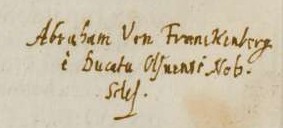 Abraham Von Franckenberg
è Ducatu Olsnensi Nob.
Siles.